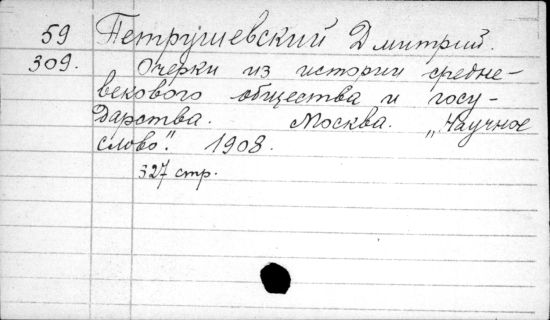 59 Петрушевский Дмитрий.
309. Очерки из истории средне-
векового общества и госу-
дарства. Москва. „Научное
слово". 1908.
327 стр.